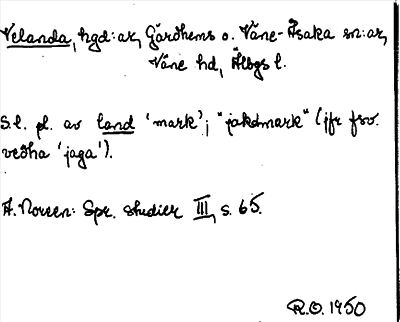 Velanda, hgd:ar, Gärdhems o. Väne-Åsaka sn:ar,
Väne hd, Älvbgs l.
S.l. pl. av land 'mark'; "jaktmark" (jfr fsv.
vedha 'jaga').
A. Noreen: Spr. studier III, s. 65.
R.O. 1950